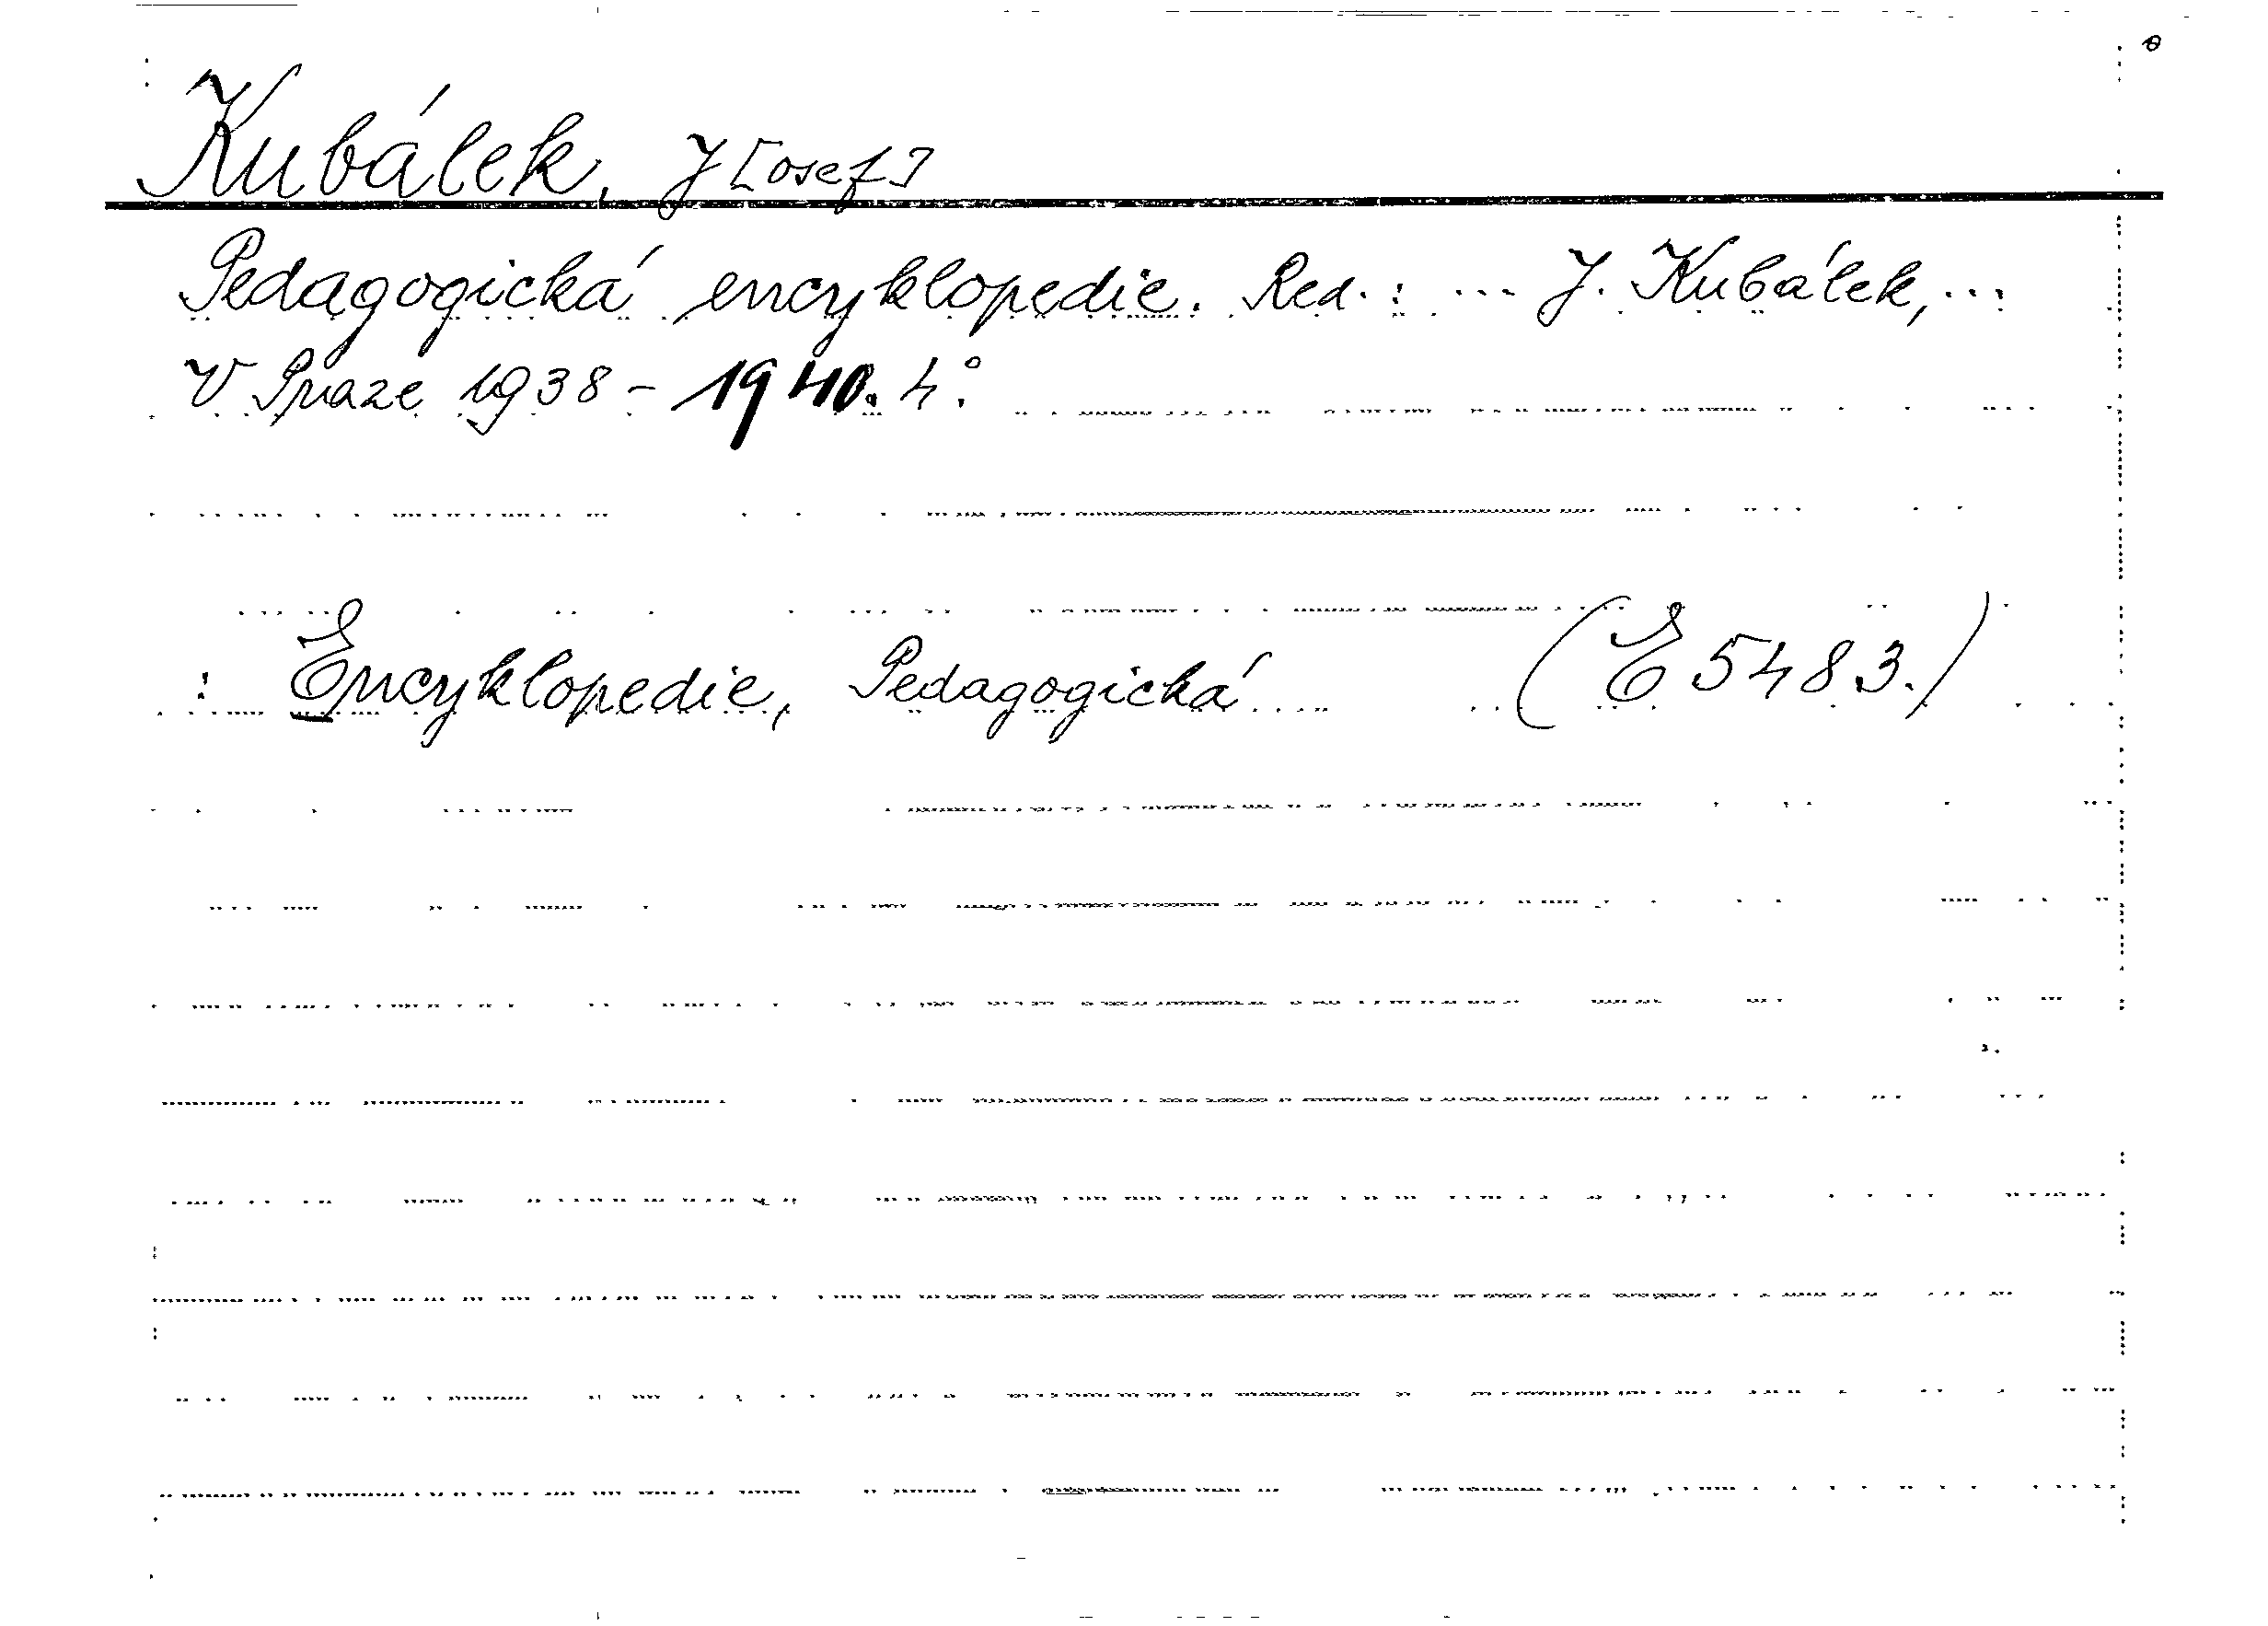 Kubálek, J[osef]
Pedagogická encyklopedie. Red.: ... J. Kubálek, ...
V Praze 1938 - 1940. 4°.
: Encyklopedie, Pedagogická (E 5483.)